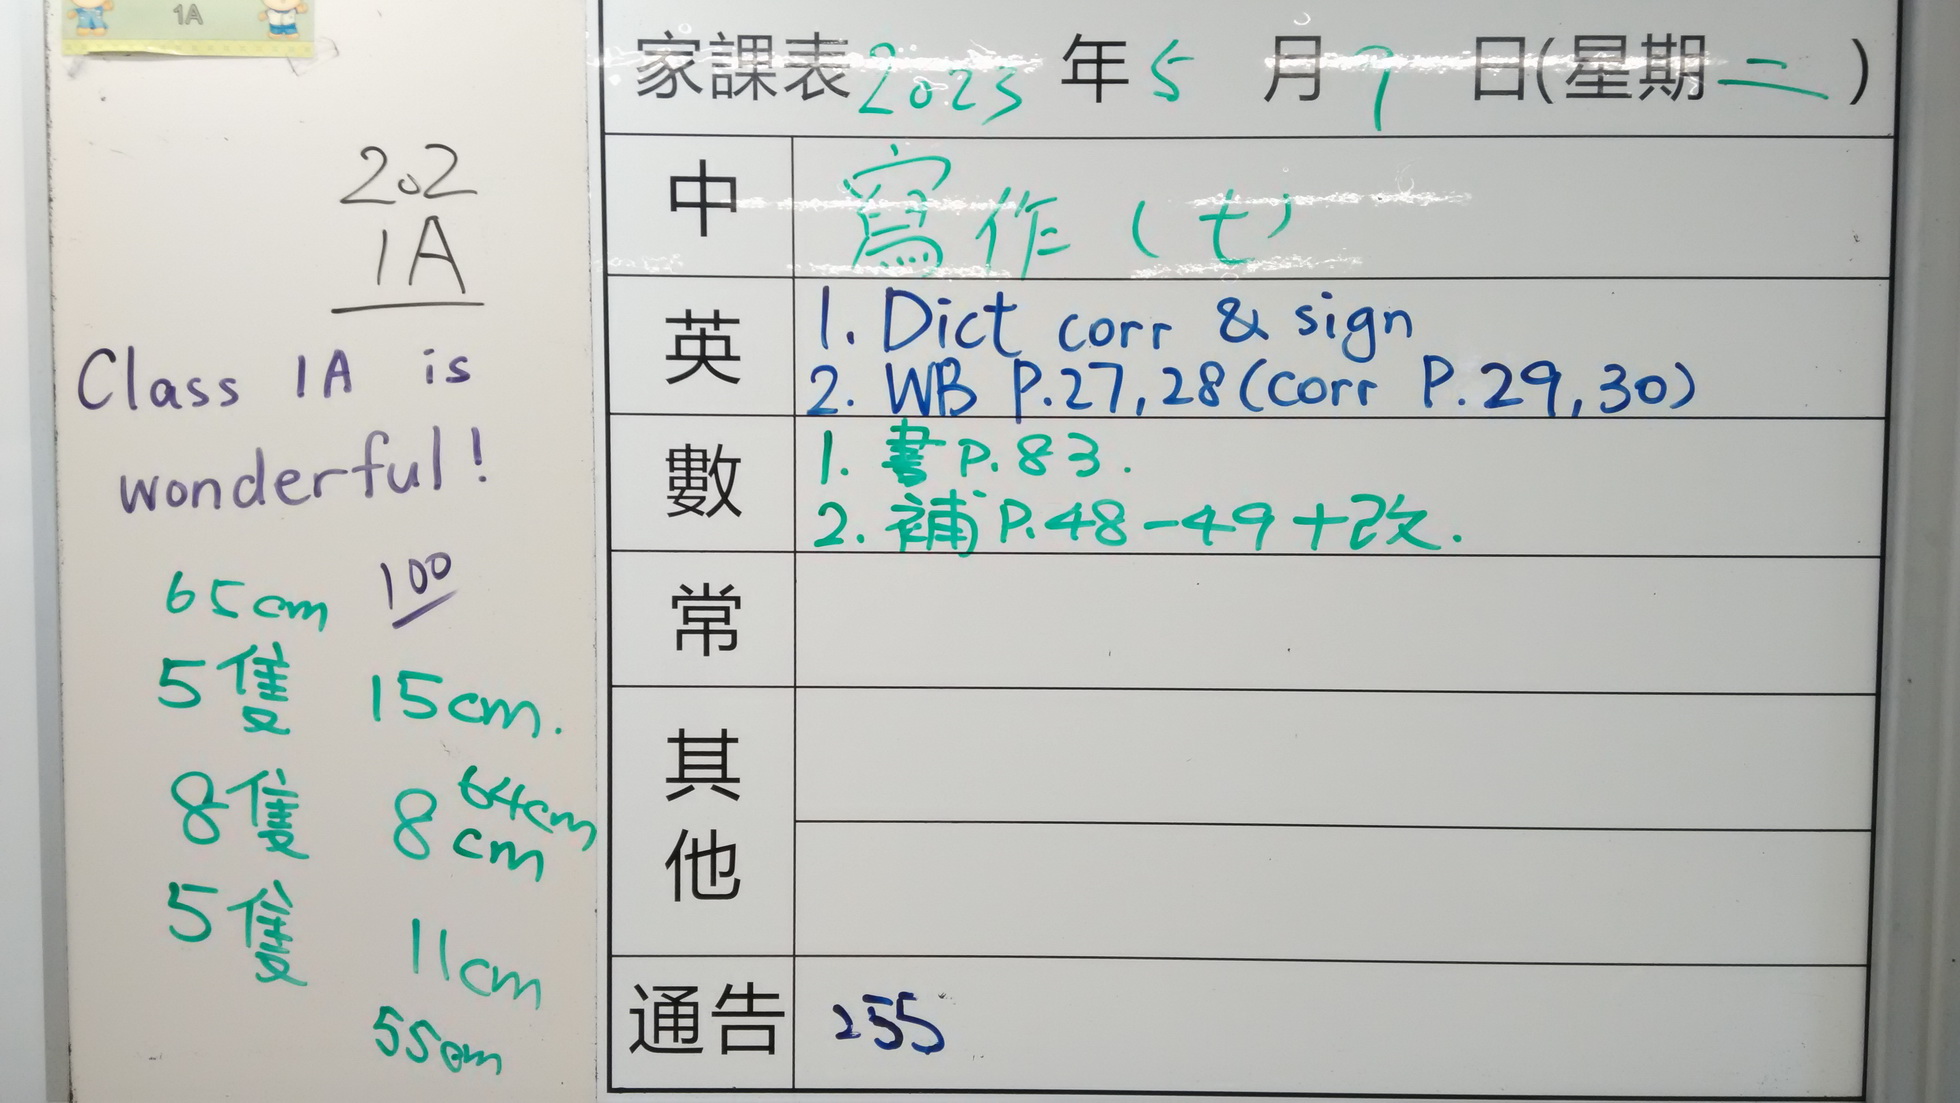 1A
202
1A
Class 1A is
wonderful!
100
65cm
5隻 15cm.
64cm
8隻 8cm
5隻 11cm
55cm
家課表2023年5月9日(星期二)
中 寫作(七)
英 1. Dict corr & sign
2. WB P.27,28(corr P.29,30)
數 1. 書P.83.
2. 補P.48-49+改.
常
其他
通告 255